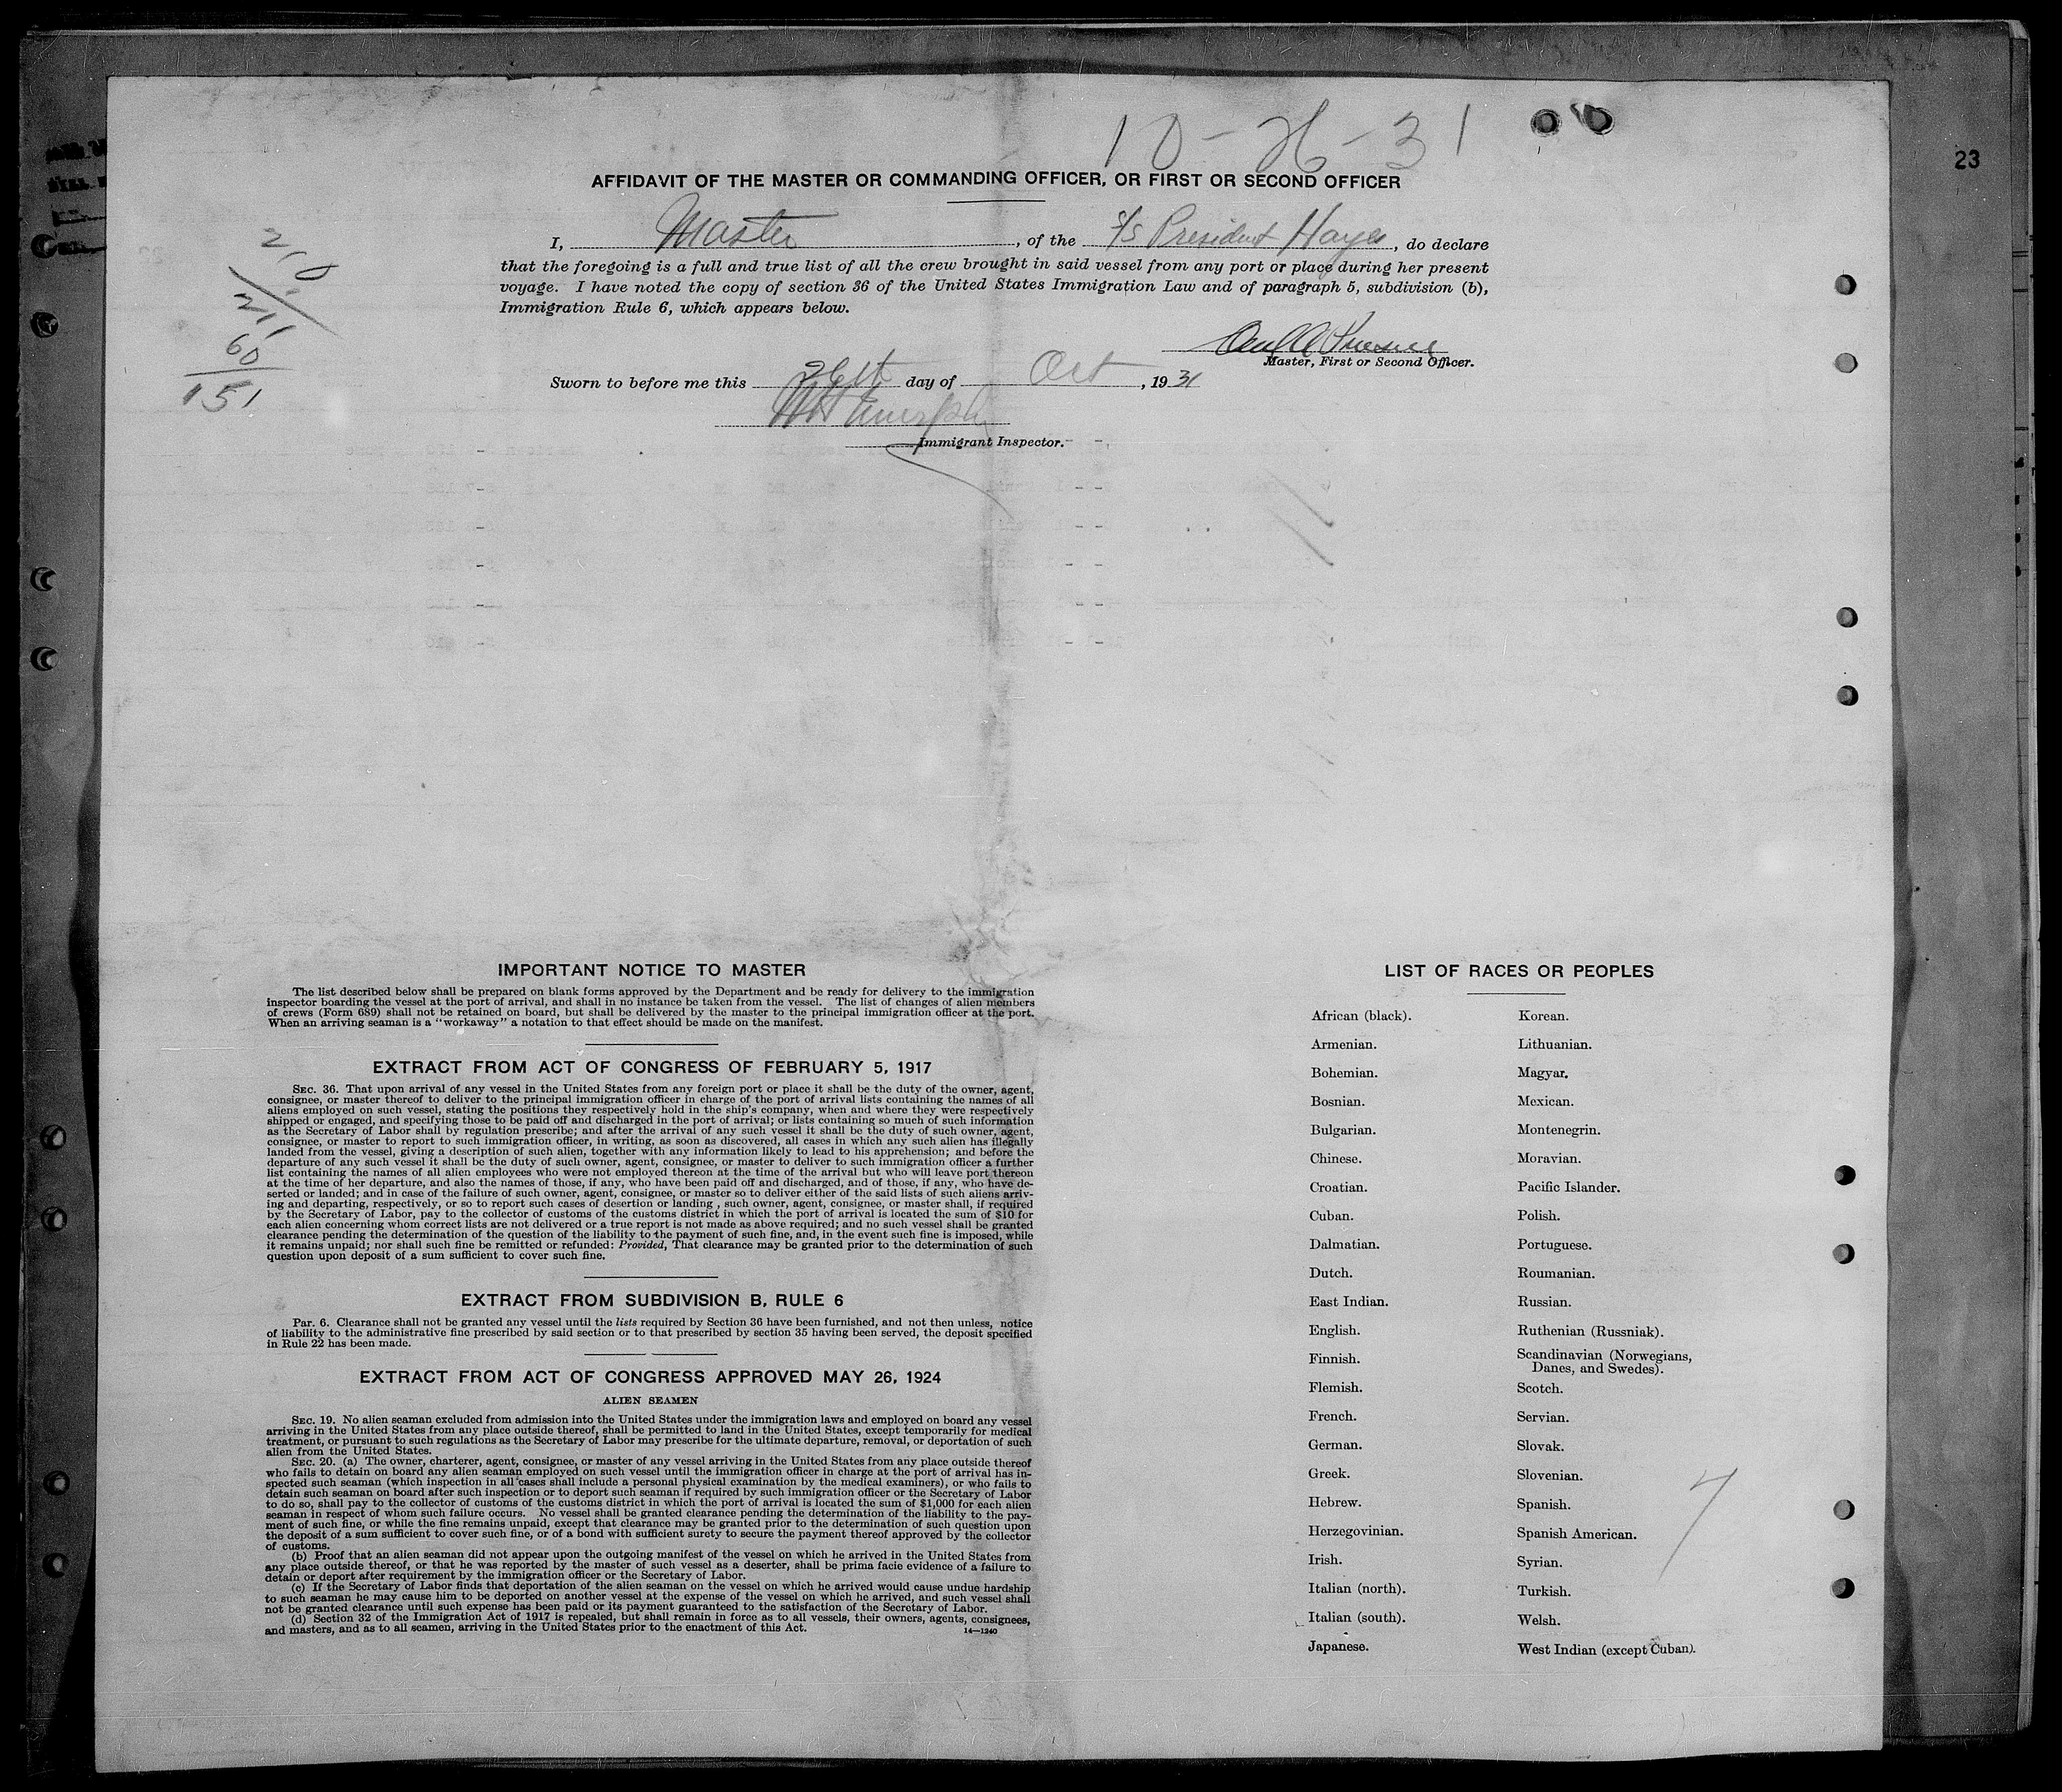 10-26-31
23
AFFIDAVIT OF THE MASTER OR COMMANDING OFFICER, OR FIRST OR SECOND OFFICER
I, Master, of the S/S President Hayes, do declare
that the foregoing is a full and true list of all the crew brought in said vessel from any port or place during her present
voyage. I have noted the copy of section 36 of the United States Immigration Law and of paragraph 5, subdivision (b),
Immigration Rule 6, which appears below.
210
211
60
151
Master, First or Second Officer.
Sworn to before me this 26th day of Oct, 1931
Murphy
Immigrant Inspector.
IMPORTANT NOTICE TO MASTER
The list described below shall be prepared on blank forms approved by the Department and be ready for delivery to the immigration
inspector boarding the vessel at the port of arrival, and shall in no instance be taken from the vessel. The list of changes of alien members
of crews (Form 689) shall not be retained on board, but shall be delivered by the master to the principal immigration officer at the port.
When an arriving seaman is a "workaway" a notation to that effect should be made on the manifest.
EXTRACT FROM ACT OF CONGRESS OF FEBRUARY 5, 1917
SEC. 36. That upon arrival of any vessel in the United States from any foreign port or place it shall be the duty of the owner, agent,
consignee, or master thereof to deliver to the principal immigration officer in charge of the port of arrival lists containing the names of all
aliens employed on such vessel, stating the positions they respectively hold in the ship's company, when and where they were respectively
shipped or engaged, and specifying those to be paid off and discharged in the port of arrival; or lists containing so much of such information
as the Secretary of Labor shall by regulation prescribe; and after the arrival of any such vessel it shall be the duty of such owner, agent,
consignee, or master to report to such immigration officer, in writing, as soon as discovered, all cases in which any such alien has illegally
landed from the vessel, giving a description of such alien, together with any information likely to lead to his apprehension; and before the
departure of any such vessel it shall be the duty of such owner, agent, consignee, or master to deliver to such immigration officer a further
list containing the names of all alien employees who were not employed thereon at the time of the arrival but who will leave port thereon
at the time of her departure, and also the names of those, if any, who have been paid off and discharged, and of those, if any, who have de-
serted or landed; and in case of the failure of such owner, agent, consignee, or master so to deliver either of the said lists of such aliens arriv-
ing and departing, respectively, or so to report such cases of desertion or landing , such owner, agent, consignee, or master shall, if required
by the Secretary of Labor, pay to the collector of customs of the customs district in which the port of arrival is located the sum of $10 for
each alien concerning whom correct lists are not delivered or a true report is not made as above required; and no such vessel shall be granted
clearance pending the determination of the question of the liability to the payment of such fine, and, in the event such fine is imposed, while
it remains unpaid; nor shall such fine be remitted or refunded: Provided, That clearance may be granted prior to the determination of such
question upon deposit of a sum sufficient to cover such fine.
EXTRACT FROM SUBDIVISION B, RULE 6
Par. 6. Clearance shall not be granted any vessel until the lists required by Section 36 have been furnished, and not then unless, notice
of liability to the administrative fine prescribed by said section or to that prescribed by section 35 having been served, the deposit specified
in Rule 22 has been made.
EXTRACT FROM ACT OF CONGRESS APPROVED MAY 26, 1924
ALIEN SEAMEN
SEC. 19. No alien seaman excluded from admission into the United States under the immigration laws and employed on board any vessel
arriving in the United States from any place outside thereof, shall be permitted to land in the United States, except temporarily for medical
treatment, or pursuant to such regulations as the Secretary of Labor may prescribe for the ultimate departure, removal, or deportation of such
alien from the United States.
SEC. 20. (a) The owner, charterer, agent, consignee, or master of any vessel arriving in the United States from any place outside thereof
who fails to detain on board any alien seaman employed on such vessel until the immigration officer in charge at the port of arrival has in-
spected such seaman (which inspection in all cases shall include a personal physical examination by the medical examiners), or who fails to
detain such seaman on board after such inspection or to deport such seaman if required by such immigration officer or the Secretary of Labor
to do so, shall pay to the collector of customs of the customs district in which the port of arrival is located the sum of $1,000 for each alien
seaman in respect of whom such failure occurs. No vessel shall be granted clearance pending the determination of the liability to the pay-
ment of such fine, or while the fine remains unpaid, except that clearance may be granted prior to the determination of such question upon
the deposit of a sum sufficient to cover such fine, or of a bond with sufficient surety to secure the payment thereof approved by the collector
of customs.
(b) Proof that an alien seaman did not appear upon the outgoing manifest of the vessel on which he arrived in the United States from
any place outside thereof, or that he was reported by the master of such vessel as a deserter, shall be prima facie evidence of a failure to
detain or deport after requirement by the immigration officer or the Secretary of Labor.
(c) If the Secretary of Labor finds that deportation of the alien seaman on the vessel on which he arrived would cause undue hardship
to such seaman he may cause him to be deported on another vessel at the expense of the vessel on which he arrived, and such vessel shall
not be granted clearance until such expense has been paid or its payment guaranteed to the satisfaction of the Secretary of Labor.
(d) Section 32 of the Immigration Act of 1917 is repealed, but shall remain in force as to all vessels, their owners, agents, consignees,
and masters, and as to all seamen, arriving in the United States prior to the enactment of this Act.
14—1240
LIST OF RACES OR PEOPLES
African (black).
Armenian.
Bohemian.
Bosnian.
Bulgarian.
Chinese.
Croatian.
Cuban.
Dalmatian.
Dutch.
East Indian.
English.
Finnish.
Flemish.
French.
German.
Greek.
Hebrew.
Herzegovinian.
Irish.
Italian (north).
Italian (south).
Japanese.
Korean.
Lithuanian.
Magyar.
Mexican.
Montenegrin.
Moravian.
Pacific Islander.
Polish.
Portuguese.
Roumanian.
Russian.
Ruthenian (Russniak).
Scandinavian (Norwegians,
Danes, and Swedes).
Scotch.
Servian.
Slovak.
Slovenian.
Spanish.
Spanish American.
Syrian.
Turkish.
Welsh.
West Indian (except Cuban).
7